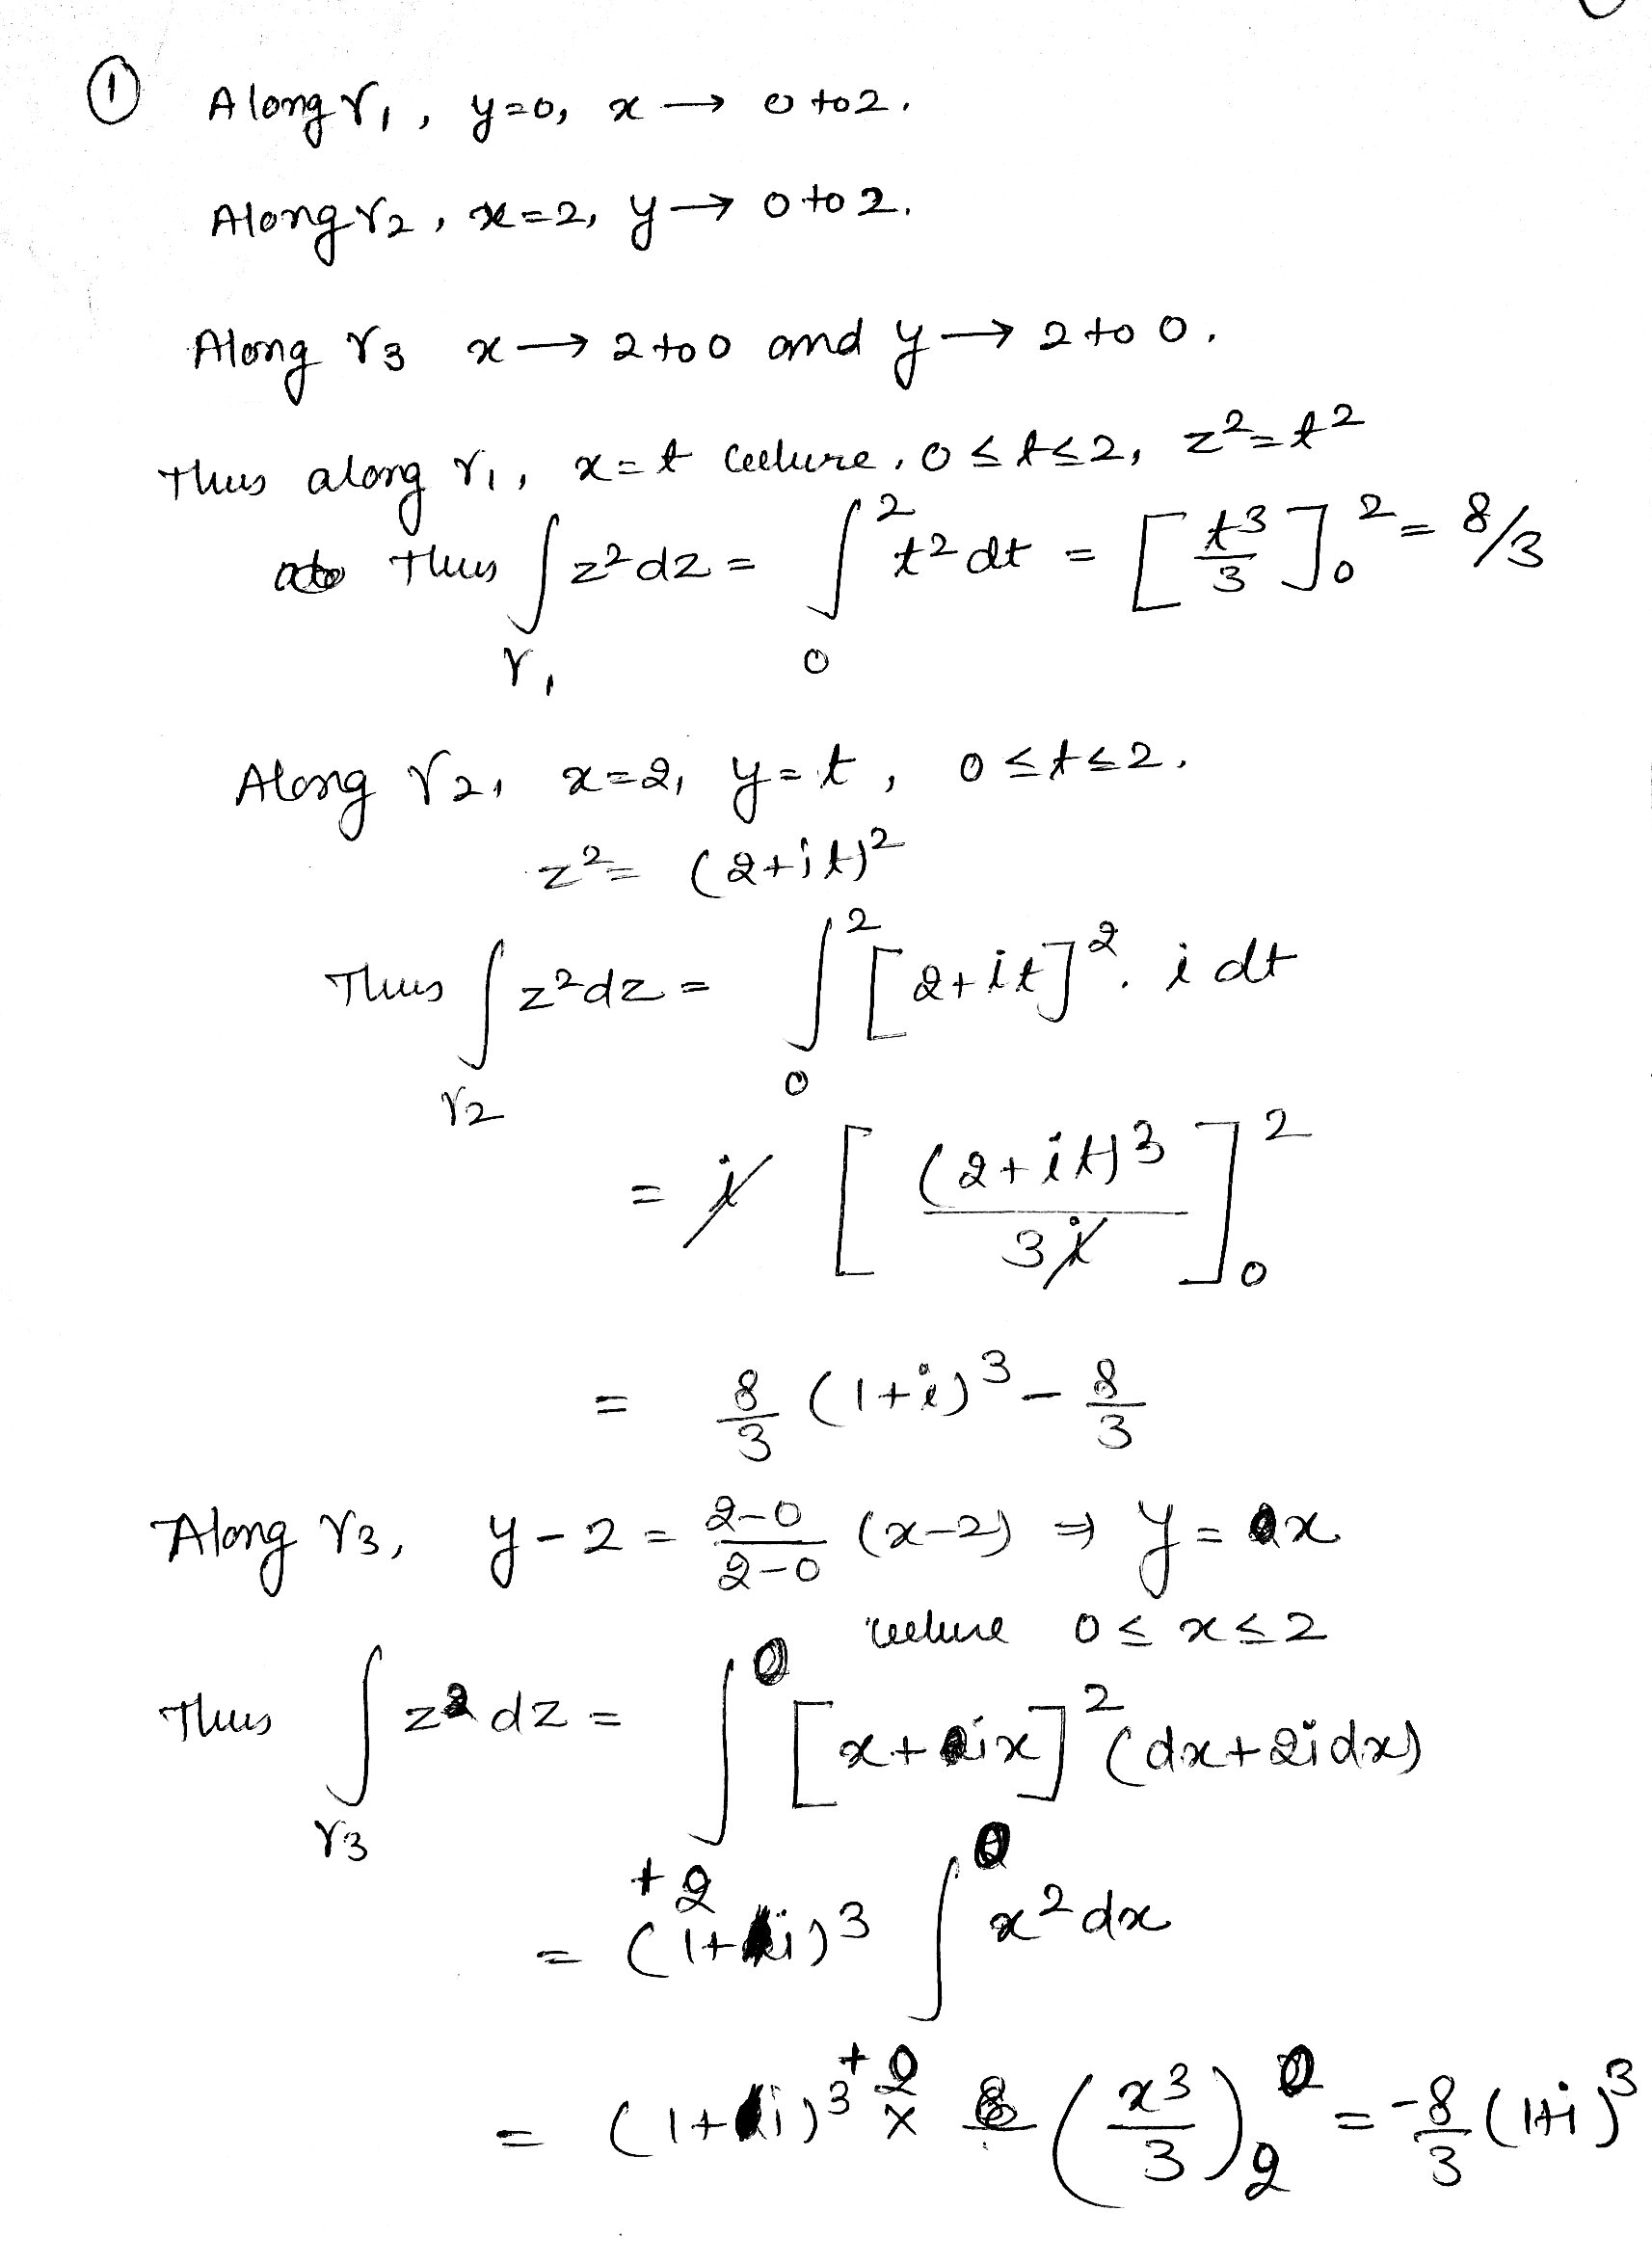 ① Along γ₁, y=0, x → 0 to 2.
Along γ2, x=2, y → 0 to 2.
Along γ3 x → 2 to 0 and y → 2 to 0.
Thus along γ₁, x=t where, 0 ≤ t ≤ 2, z² = t²
Thus ∫_γ₁ z² dz = ∫_0^2 t² dt = [t³/3]_0^2 = 8/3
Along γ2, x=2, y=t, 0 ≤ t ≤ 2.
z² = (2+it)²
Thus ∫_γ2 z² dz = ∫_0^2 [2+it]². i dt
= i [(2+it)³/3i]_0^2
= 8/3 (1+i)³ - 8/3
Along γ3, y-2 = (2-0)/(2-0) (x-2) ⇒ y = x
where 0 ≤ x ≤ 2
Thus ∫_γ3 z² dz = ∫_{+2}^0 [x+ix]² (dx+2idx)
= (1+i)³ ∫_{+2}^0 x² dx
= (1+i)³ × (x³/3)_2^0 = -8/3 (1+i)³